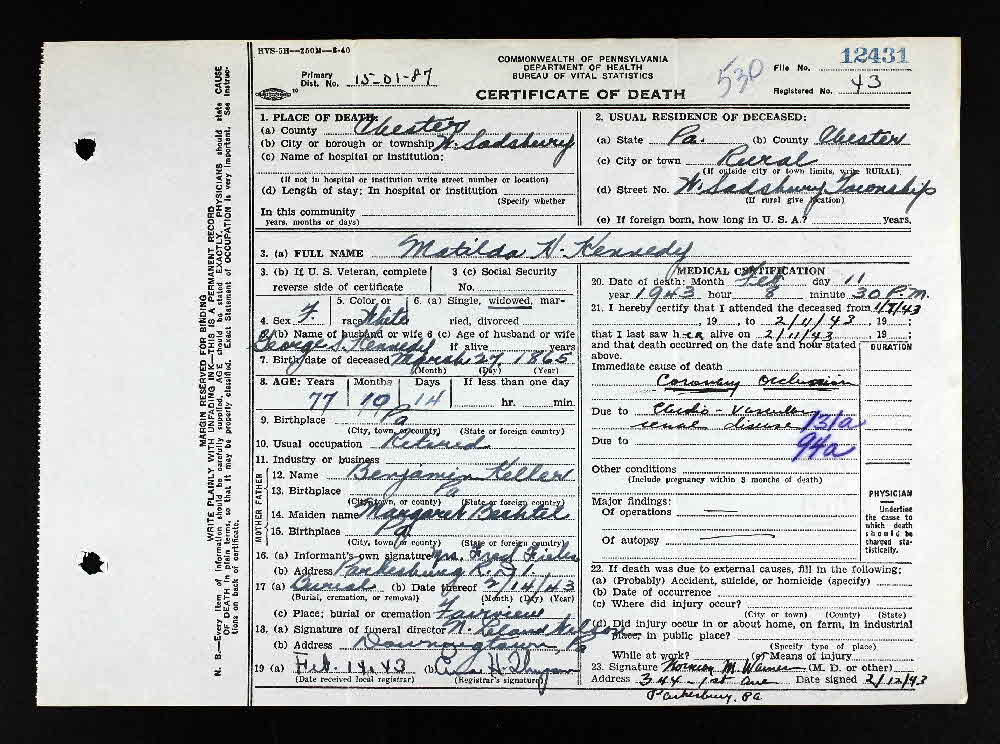 HVS-5H—250M—8-40
COMMONWEALTH OF PENNSYLVANIA
DEPARTMENT OF HEALTH
BUREAU OF VITAL STATISTICS
Primary Dist. No. 15-01-87
CERTIFICATE OF DEATH
530
12431
File No.
Registered No. 43
1. PLACE OF DEATH:
(a) County Chester
(b) City or borough or township W. Sadsbury
(c) Name of hospital or institution:
(If not in hospital or institution write street number or location)
(d) Length of stay: In hospital or institution
(Specify whether
In this community
years, months or days)
2. USUAL RESIDENCE OF DECEASED:
(a) State Pa. (b) County Chester
(c) City or town Rural
(If outside city or town limits, write RURAL)
(d) Street No. W. Sadsbury Township
(If rural give location)
(e) If foreign born, how long in U. S. A.? years.
3. (a) FULL NAME Matilda H. Kennedy
3. (b) If U. S. Veteran, complete reverse side of certificate
3 (c) Social Security No.
4. Sex F.
5. Color or race White
6. (a) Single, widowed, married, divorced
6 (b) Name of husband or wife George S. Kennedy
6 (c) Age of husband or wife if alive years
7. Birth date of deceased March 27, 1865
(Month) (Day) (Year)
8. AGE: Years Months Days If less than one day
77 10 14 hr. min.
9. Birthplace Pa
(City, town, or county) (State or foreign country)
10. Usual occupation Retired
11. Industry or business
FATHER
12. Name Benjamin Keller
13. Birthplace Pa
(City, town, or county) (State or foreign country)
MOTHER
14. Maiden name Margaret Bechtel
15. Birthplace Pa
(City, town, or county) (State or foreign country)
16. (a) Informant's own signature Mrs. Fred
(b) Address Parkesburg R.D. 1
17 (a) Burial (b) Date thereof 2/14/43
(Burial, cremation, or removal) (Month) (Day) (Year)
(c) Place; burial or cremation Fairview
18. (a) Signature of funeral director
(b) Address Downingtown, Pa
19 (a) Feb. 14, 43 (b)
(Date received local registrar) (Registrar's signature)
MEDICAL CERTIFICATION
20. Date of death: Month Feb day 11
year 1943 hour 8 minute 30 P.M.
21. I hereby certify that I attended the deceased from 1/7/43
, 19 to 2/11/43, 19 ;
that I last saw her alive on 2/11/43, 19 ;
and that death occurred on the date and hour stated above.
DURATION
Immediate cause of death
Coronary occlusion
Due to Cardio-vascular
renal disease 131a
Due to 94a
Other conditions
(Include pregnancy within 3 months of death)
Major findings:
Of operations
Of autopsy
PHYSICIAN
Underline the cause to which death should be charged statistically.
22. If death was due to external causes, fill in the following:
(a) (Probably) Accident, suicide, or homicide (specify)
(b) Date of occurrence
(c) Where did injury occur?
(City or town) (County) (State)
(d) Did injury occur in or about home, on farm, in industrial place, in public place?
(Specify type of place)
While at work? (e) Means of injury
23. Signature Norman M. Warner (M. D. or other)
Address 344 - 1st Ave Date signed 2/12/43
Parkesburg, Pa
MARGIN RESERVED FOR BINDING
WRITE PLAINLY WITH UNFADING INK—THIS IS A PERMANENT RECORD
N. B.—Every item of information should be carefully supplied. AGE should be stated EXACTLY. PHYSICIANS should state CAUSE
OF DEATH in plain terms, so that it may be properly classified. Exact Statement of OCCUPATION is very important. See instructions on back of certificate.